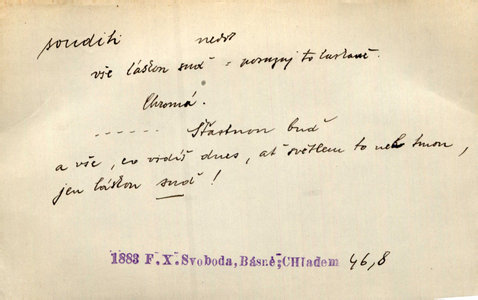 souditi nedok
vše láskou suď = posuzuj to laskavě.
Chromá.
------ Šťastnou buď
a vše, co vidíš dnes, ať světlem to neb tmou,
jen láskou suď!
1883 F.X.Svoboda, Básně;CHladem 46,8